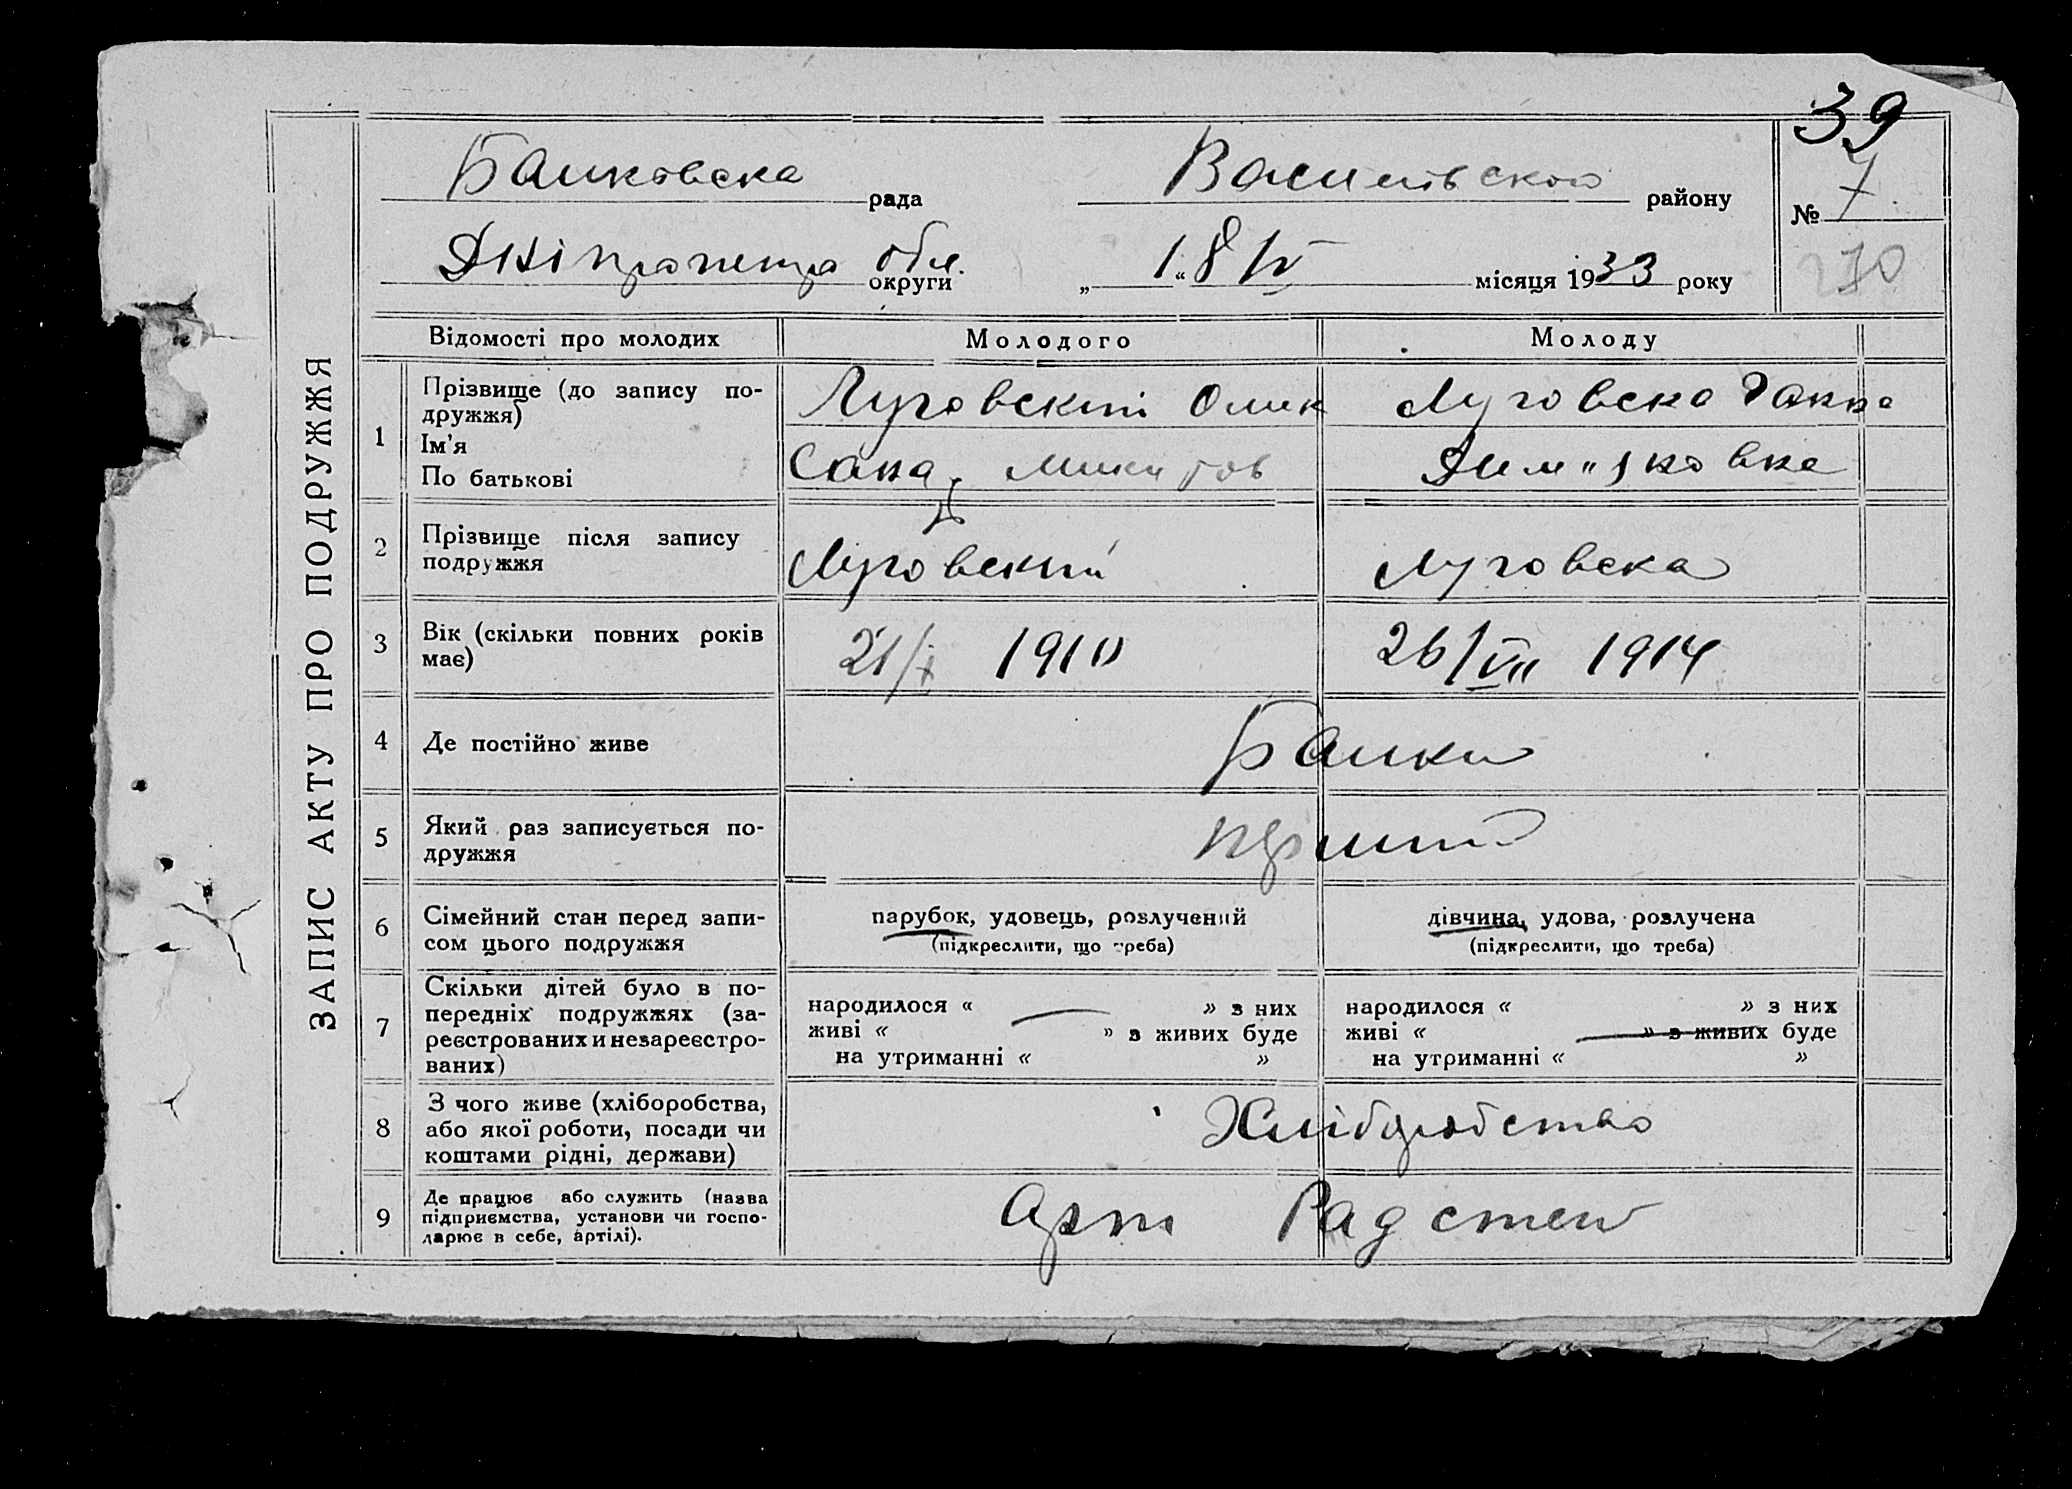 39
Балковська рада Василівського району № 7
Дніпропетр обл. округи „ 18 “ IV місяця 1933 року
270
ЗАПИС АКТУ ПРО ПОДРУЖЖЯ
Відомості про молодих Молодого Молоду
1 Прізвище (до запису по-
дружжя)
Ім'я
По батькові
Луговский Олек
Сана Микитов
Луговска Ганна
2 Прізвище після запису
подружжя
Луговский Луговска
3 Вік (скільки повних років
має)
21/X 1910 26/VII 1914
4 Де постійно живе Балки
5 Який раз записується по-
дружжя
перший
6 Сімейний стан перед запи-
сом цього подружжя
парубок, удовець, розлучений
(підкреслити, що треба)
дівчина, удова, розлучена
(підкреслити, що треба)
7 Скільки дітей було в по-
передніх подружжях (за-
реєстрованих и незареєстро-
ваних)
народилося « » з них
живі « » з живих буде
на утриманні « »
народилося « » з них
живі « » з живих буде
на утриманні « »
8 З чого живе (хліборобства,
або якої роботи, посади чи
коштами рідні, держави)
Хліборобство
9 Де працює або служить (назва
підприємства, установи чи госпо-
дарює в себе, артілі).
Арт Рад степ